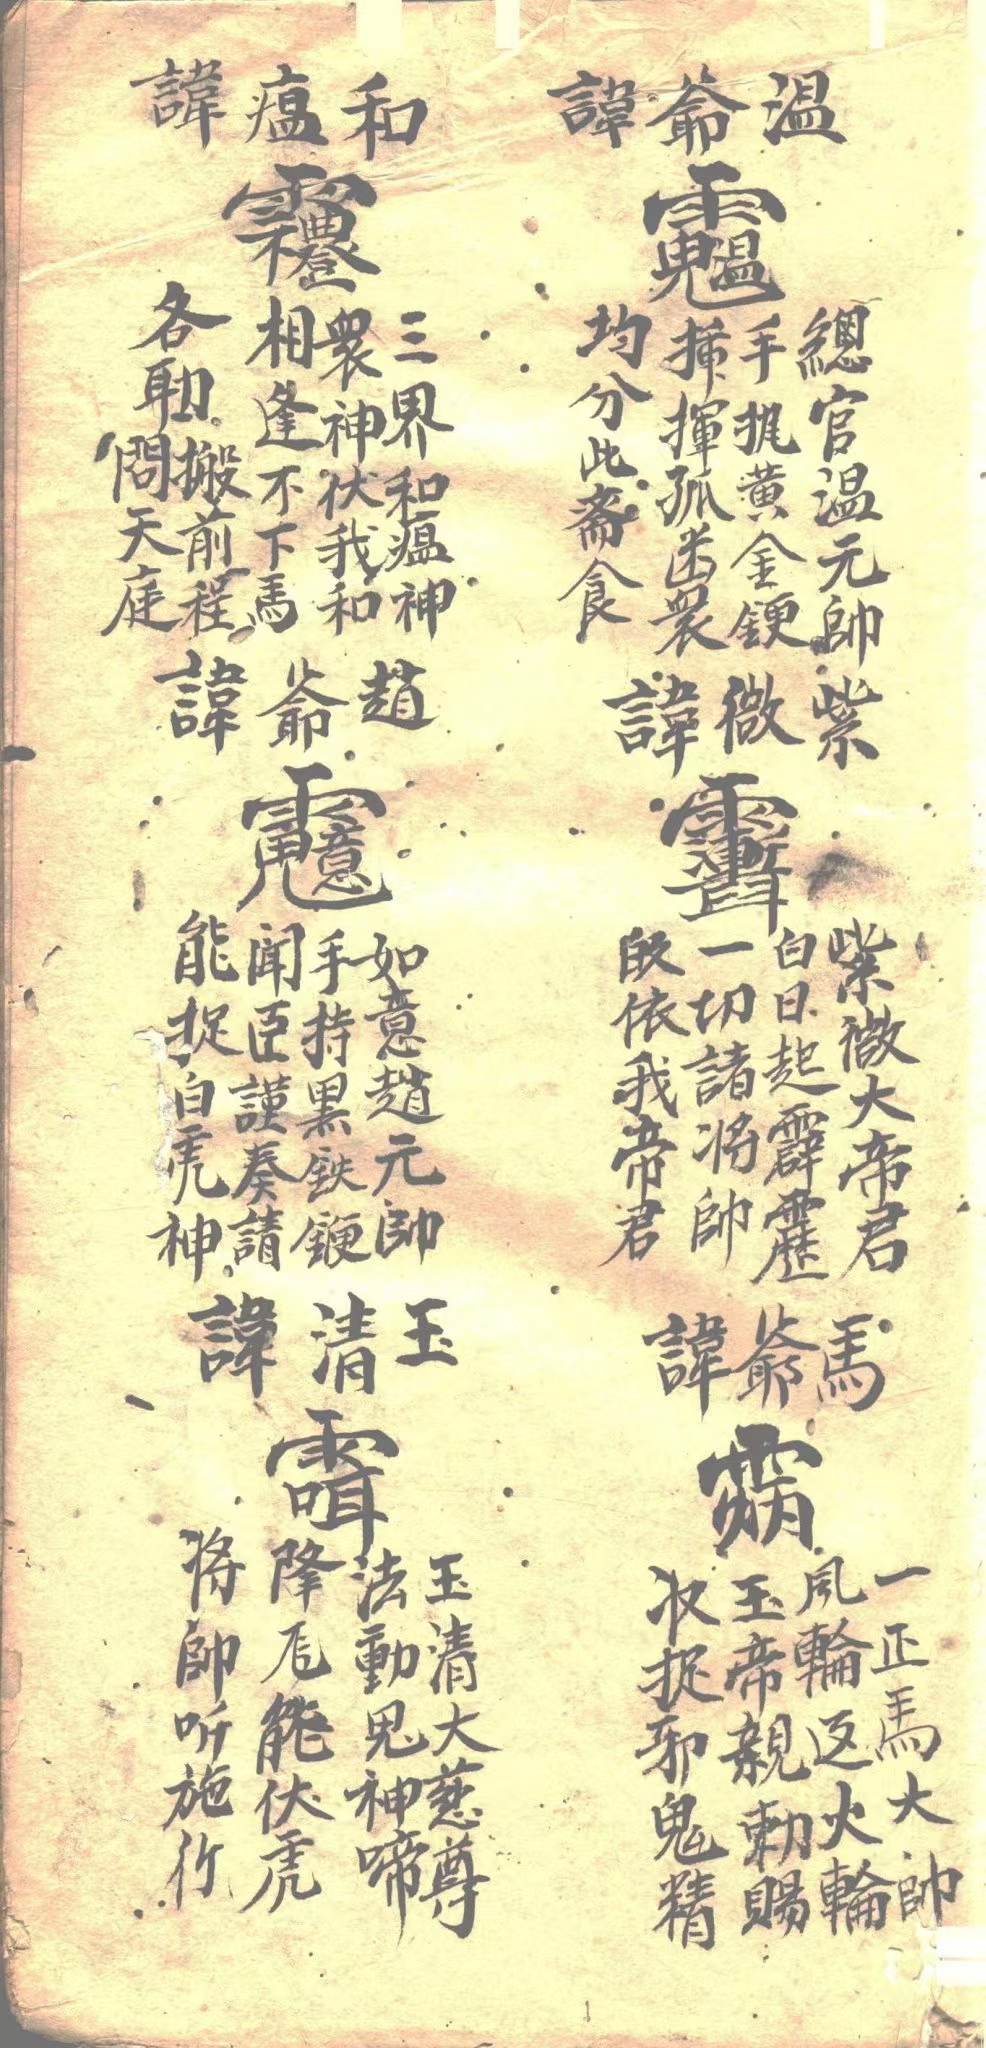 溫爺諱
總官溫元帥
手執黃金鞭
揮孤幽眾
均分此齋食
紫微諱
紫微大帝君
白日起霹靂
一切諸將帥
皈依我帝君
馬爺諱
一正馬大帥
風輪返火輪
玉帝親勅賜
收捉邪鬼精
和瘟諱
三界和瘟神
眾神伏我和
相逢不下馬
各聀搬前程
問天庭
趙爺諱
如意趙元帥
手持黑鉄鞭
聞臣謹奏請
能捉白虎神
玉清諱
玉清大慈尊
法動鬼神啼
降龙能伏虎
將帥听施行